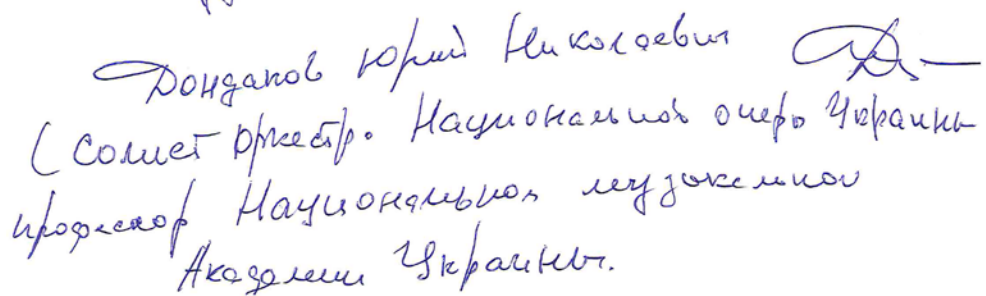 Дондаков Юрий Николаевич
(Солист оркестр. Национальной оперы Украины
профессор Национальной музыкальной
Академии Украины.